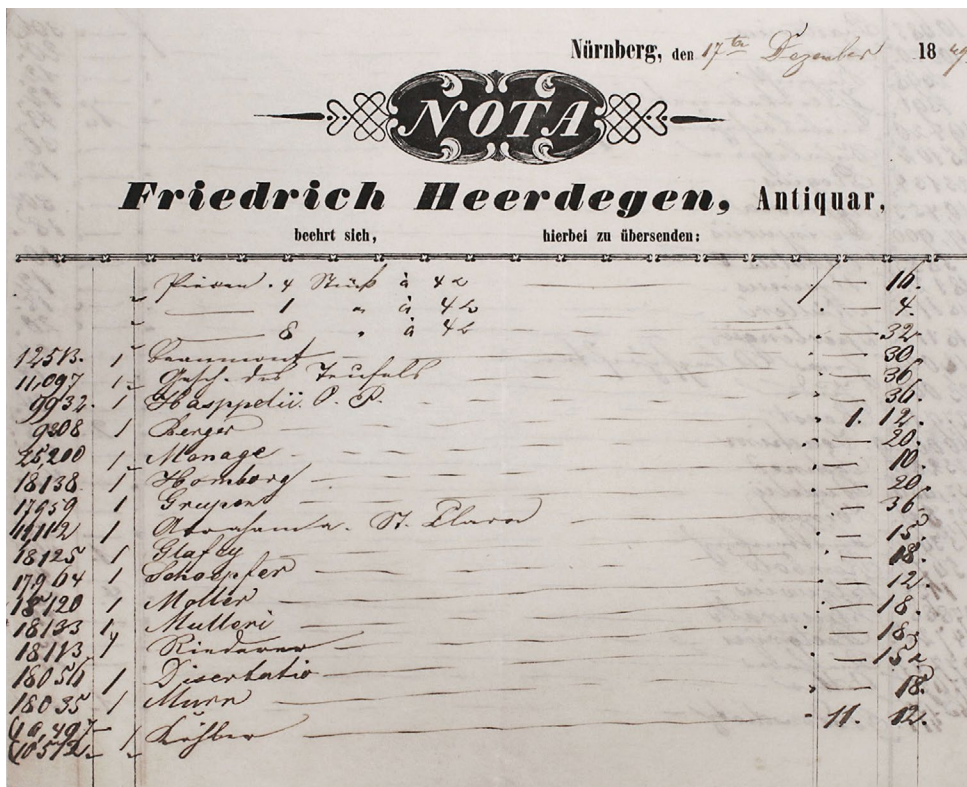 Nürnberg, den 17ten Dezember 1849
NOTA
Friedrich Heerdegen, Antiquar,
beehrt sich, hierbei zu übersenden:
4 Stück à 4 16.
1 " à 4 4.
8 " à 4 32.
1 30
11,097 1 Gesch. des Teufels 36
9932. 1 Hasppelii. O. P. 36.
9208 1 Berger 1. 12.
25,200 1 Menage 20.
18138 1 Homberg 10.
17959 1 Grupen 20.
1 Abraham a. St. Clara 36.
18125 1 Glafey 15.
17964 1 Schoepfer 18.
18120 1 Moller 12.
18133 1 Mulleri 18.
18.
18056 1 Disertatio 15
18035 1 Murr 18.
1 Köhler 11. 12.